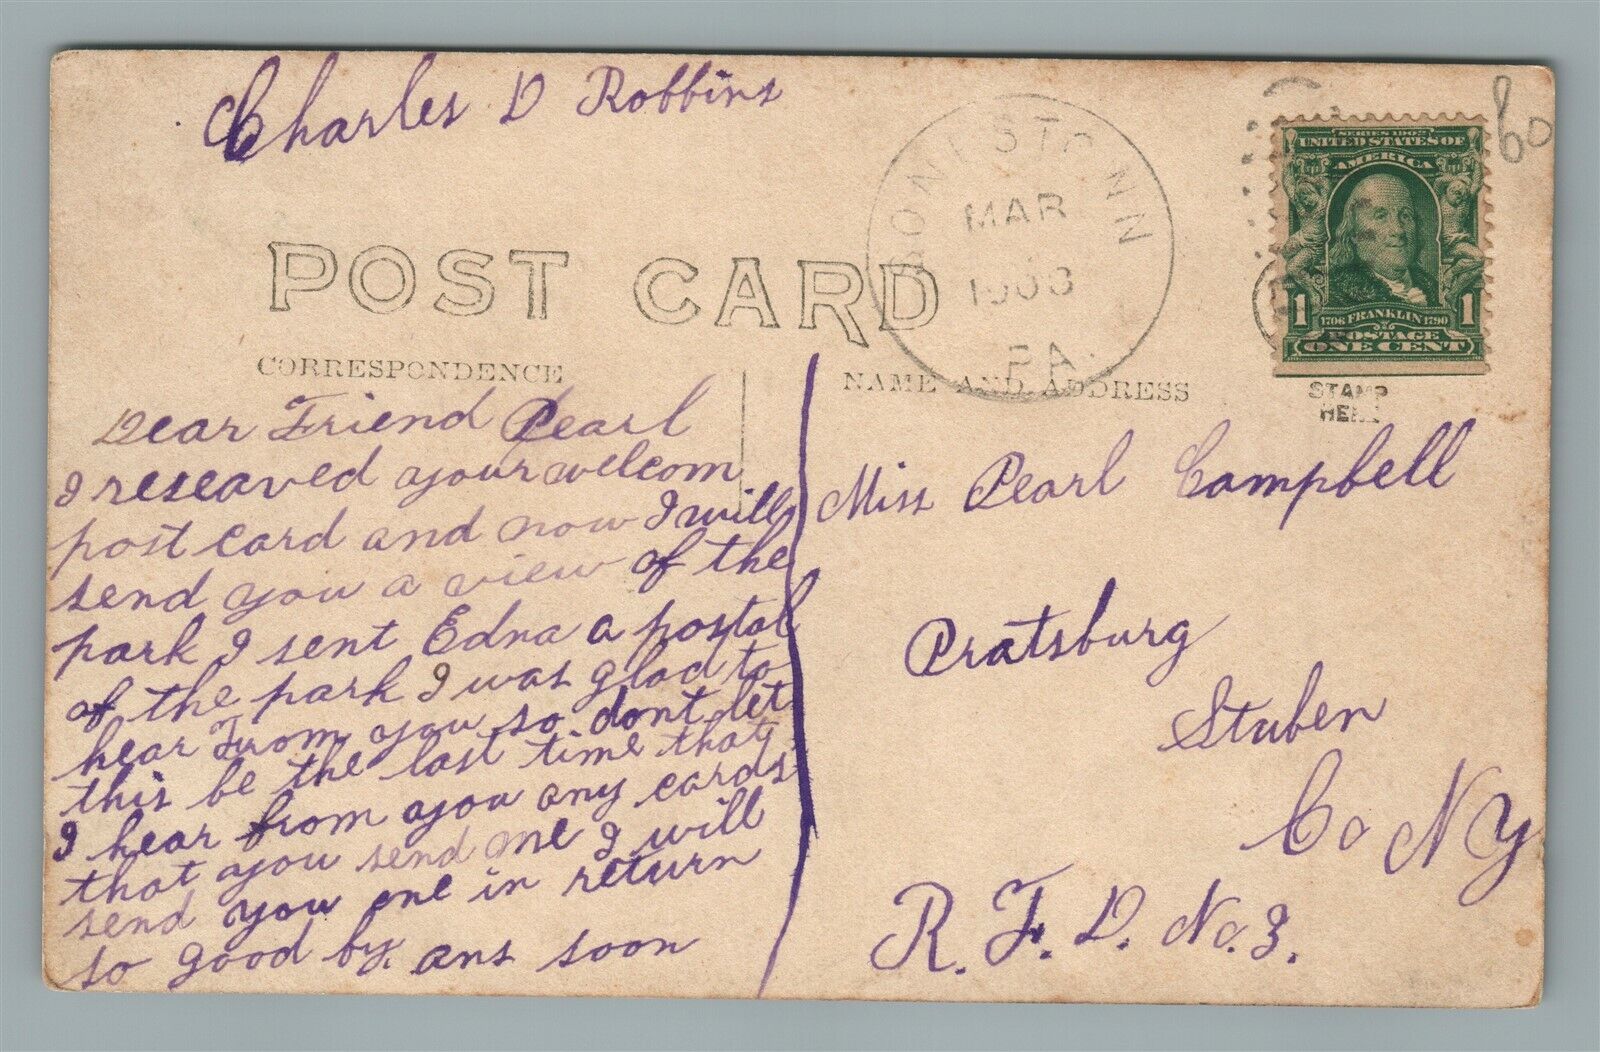 Charles D Robbins
60
SONESTOWN
MAR
1908
PA.
SERIES 1902
UNITED STATES OF
AMERICA
1706 FRANKLIN 1790
1 POSTAGE 1
ONE CENT
STAMP
HERE
POST CARD
CORRESPONDENCE
NAME AND ADDRESS
Dear Friend Pearl
I reseaved your welcom
post card and now I will
send you a view of the
park I sent Edna a postal
of the park I was glad to
hear From you so dont let
this be the last time that
I hear from you any cards
that you send me I will
send you one in return
so good by. ans soon
Miss Pearl Campbell
Pratsburg
Stuben
Co NY
R. F. D. No. 3.